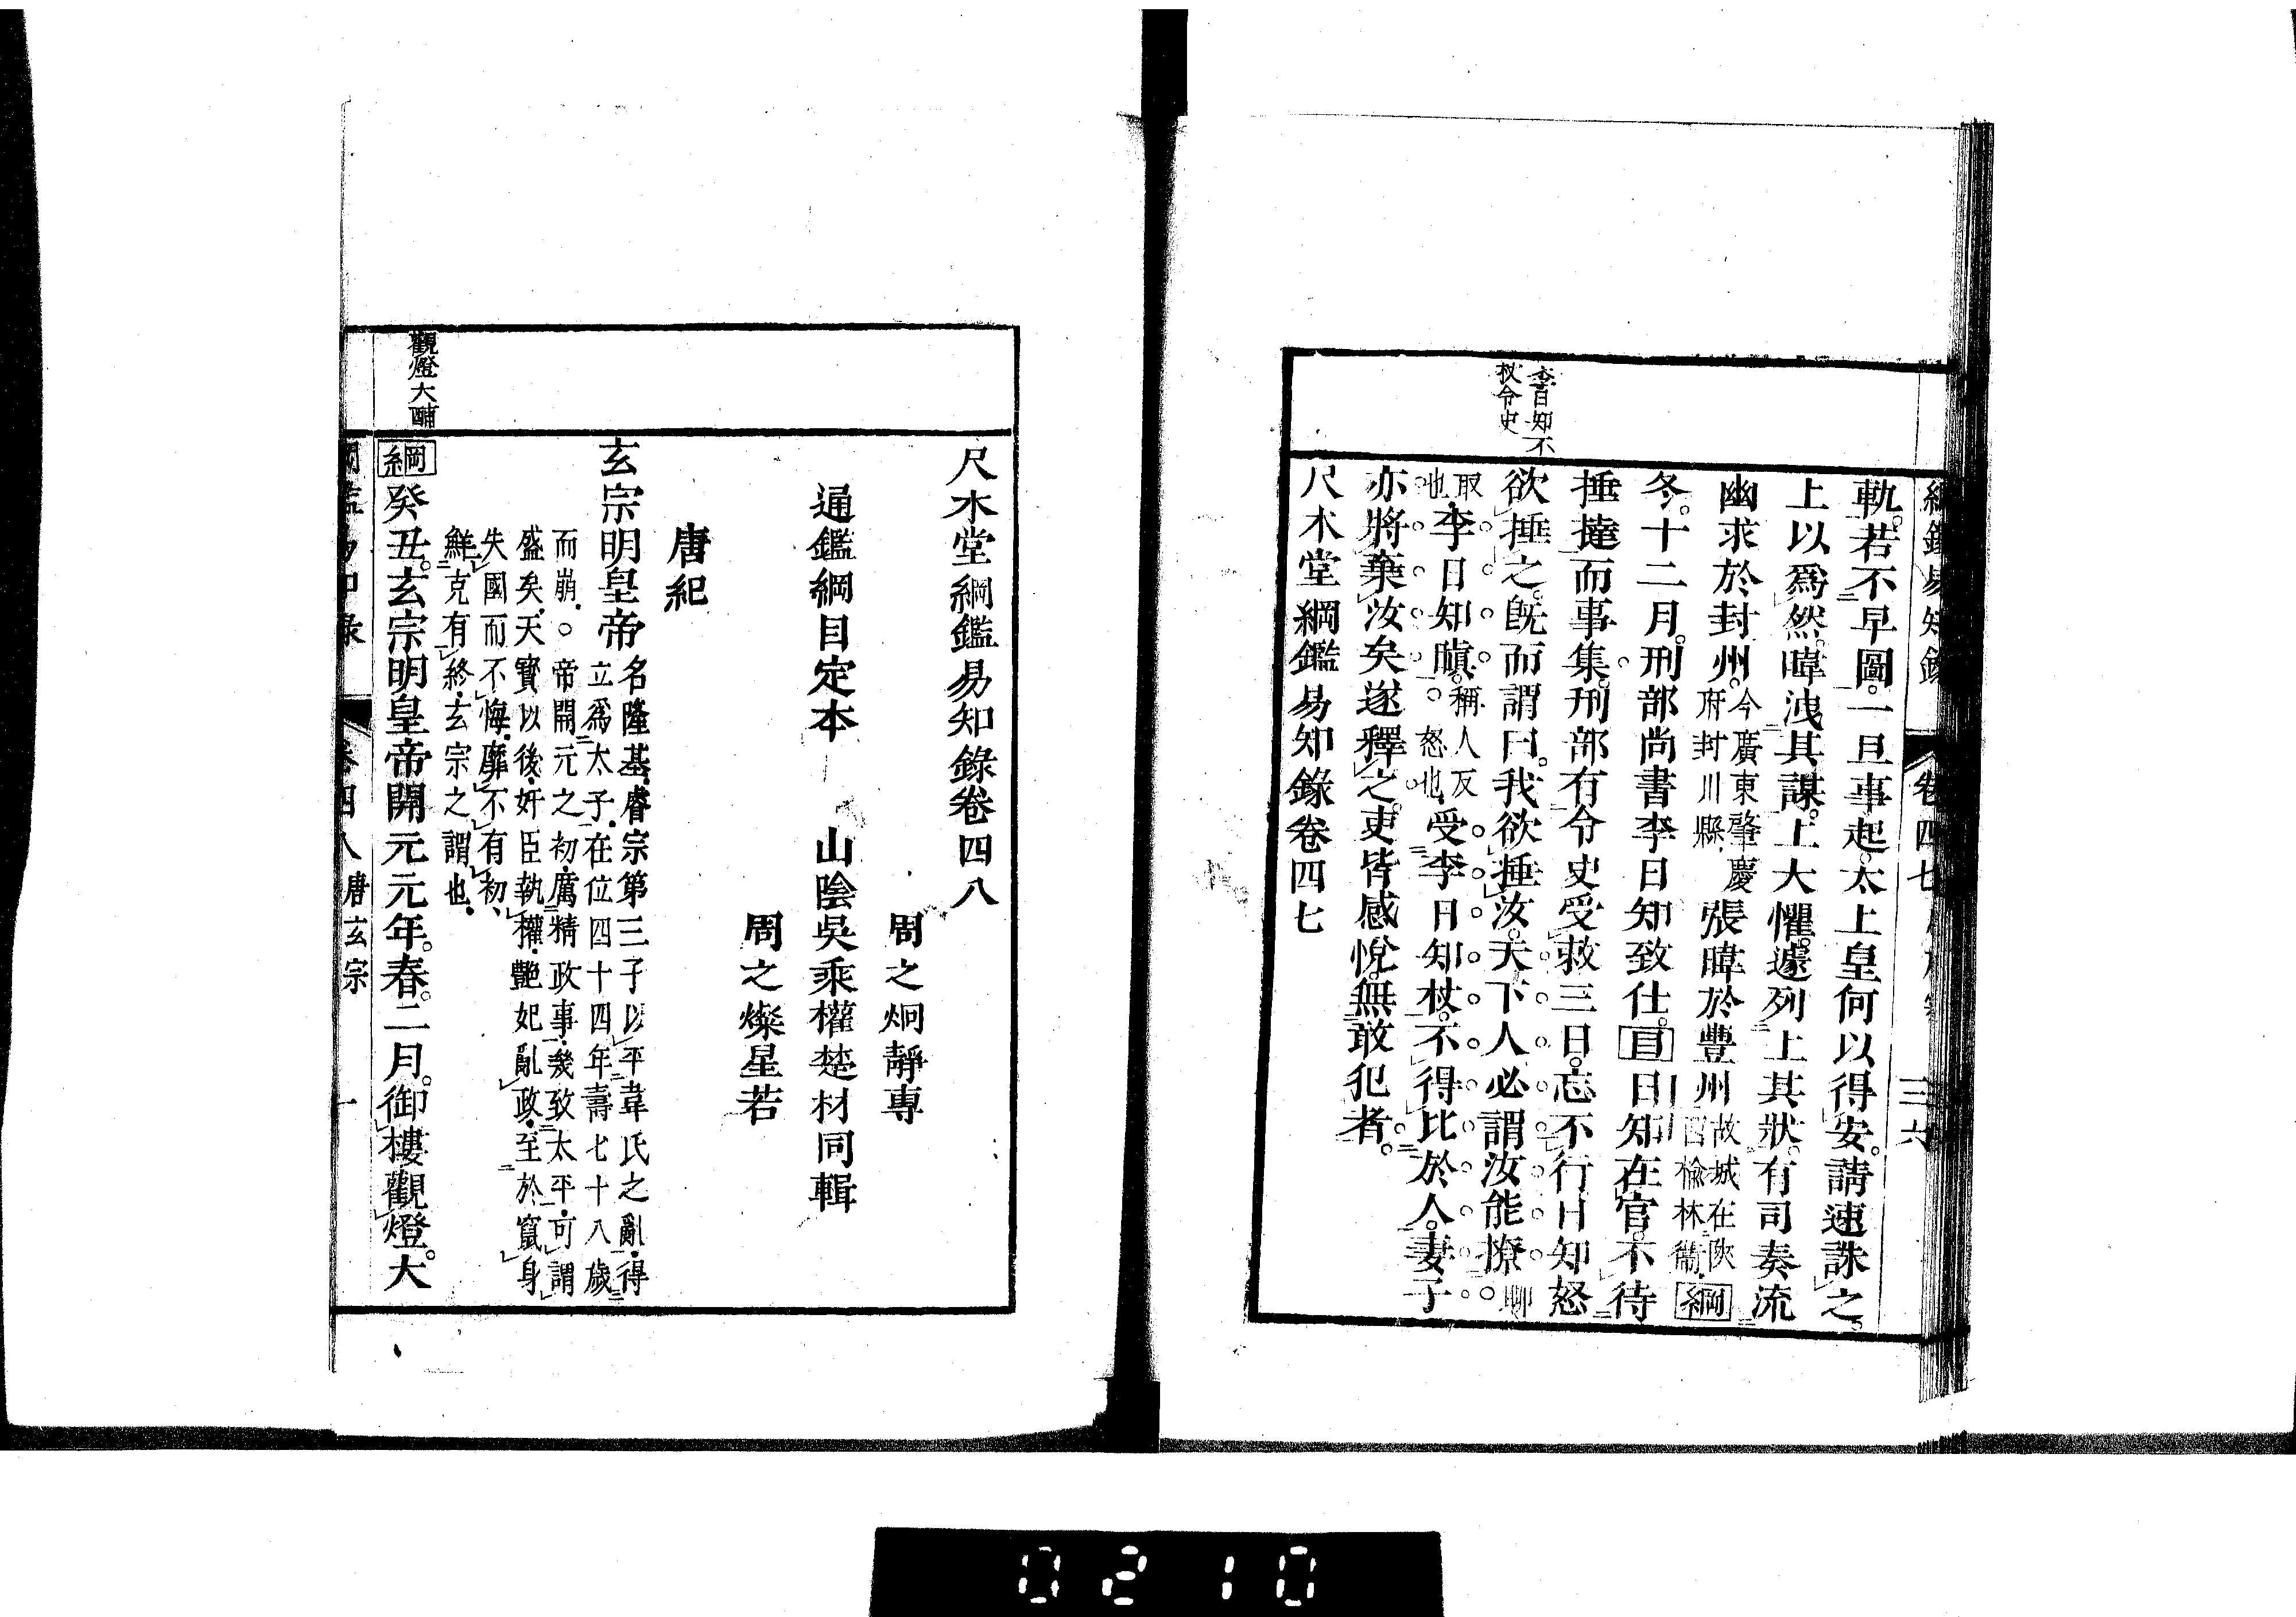 綱鑑易知錄 卷四七 三六
李日知不
杖令史
軌若不早圖一旦事起太上皇何以得安請速誅之
上以爲然暐洩其謀上大懼遽列上其狀有司奏流
幽求於封州今廣東肇慶府封川縣張暐於豐州故城在陝西榆林衞綱
冬十二月刑部尚書李日知致仕目日知在官不待
捶撻而事集刑部有令史受敕三日忘不行日知怒
欲捶之旣而謂曰我欲捶汝天下人必謂汝能撩聊
取也李日知瞋稱人反怒也受李日知杖不得比於人妻子
亦將棄汝矣遂釋之吏皆感悅無敢犯者
尺木堂綱鑑易知錄卷四七
尺木堂綱鑑易知錄卷四八
周之炯靜專
通鑑綱目定本 山陰吳乘權楚材同輯
周之燦星若
唐紀
玄宗明皇帝名隆基睿宗第三子以平韋氏之亂得
立爲太子在位四十四年壽七十八歲
而崩○帝開元之初厲精政事幾致太平可謂
盛矣天寶以後奸臣執權艷妃亂政至於竄身
失國而不悔靡不有初
鮮克有終玄宗之謂也
觀燈大酺
綱癸丑玄宗明皇帝開元元年春二月御樓觀燈大
卷四八 唐玄宗 一
0210